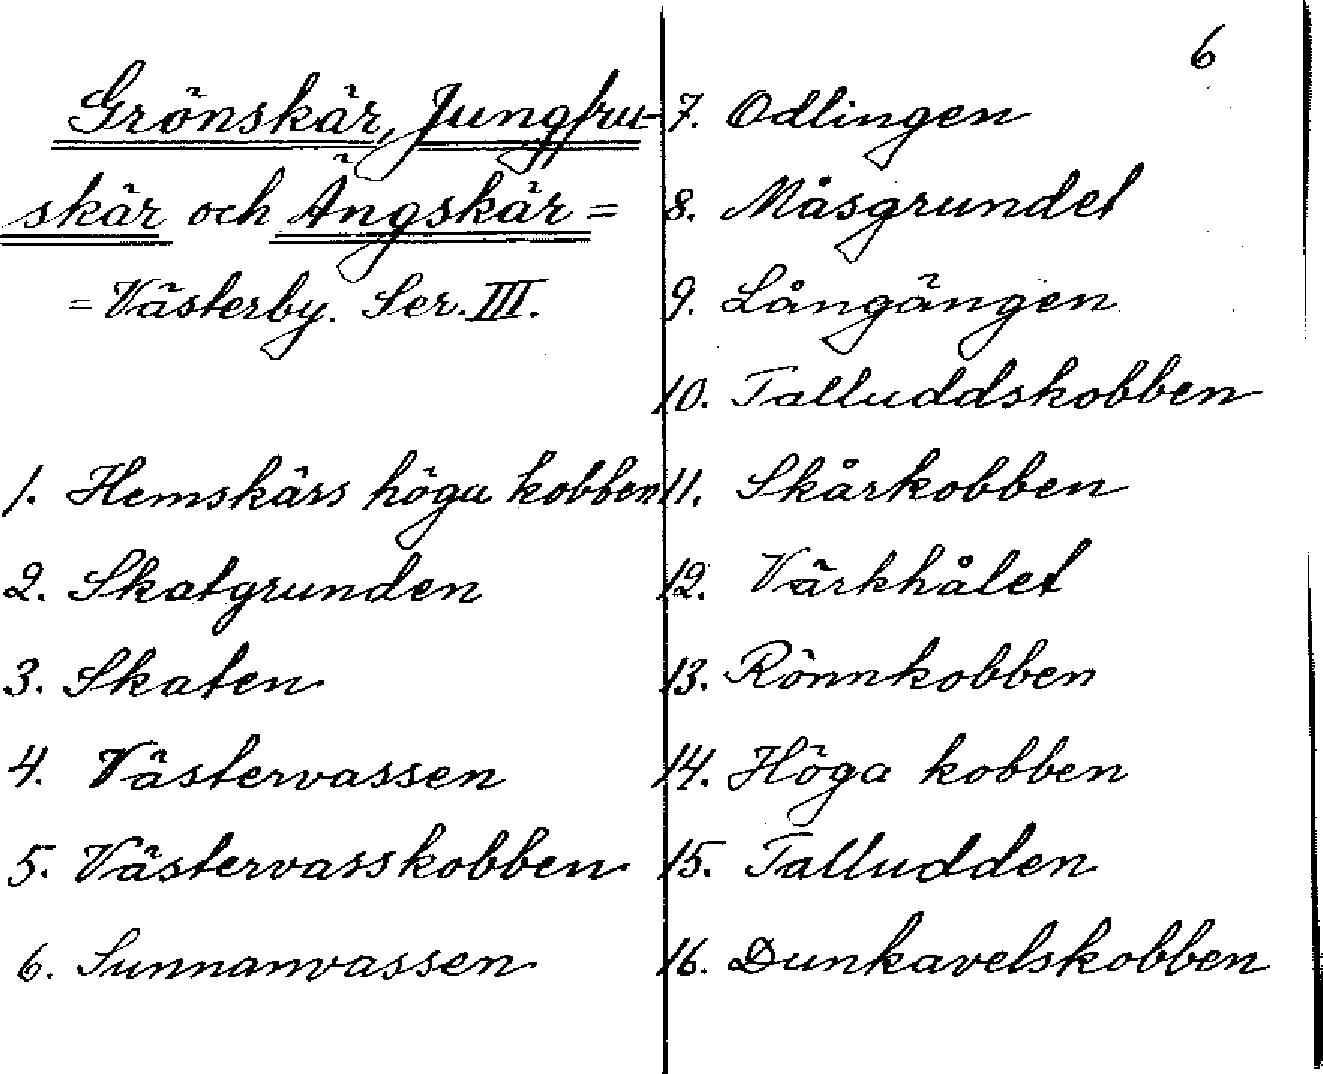 6
Grönskär, Jungfru-
skär och Ängskär =
= Västerby. Ser. III.
1. Hemskärs höga kobben
2. Skatgrunden
3. Skaten
4. Västervassen
5. Västervasskobben
6. Sunnanvassen
7. Odlingen
8. Måsgrundet
9. Långängen
10. Talluddskobben
11. Skårkobben
12. Värkhålet
13. Rönnkobben
14. Höga kobben
15. Talludden
16. Dunkavelskobben